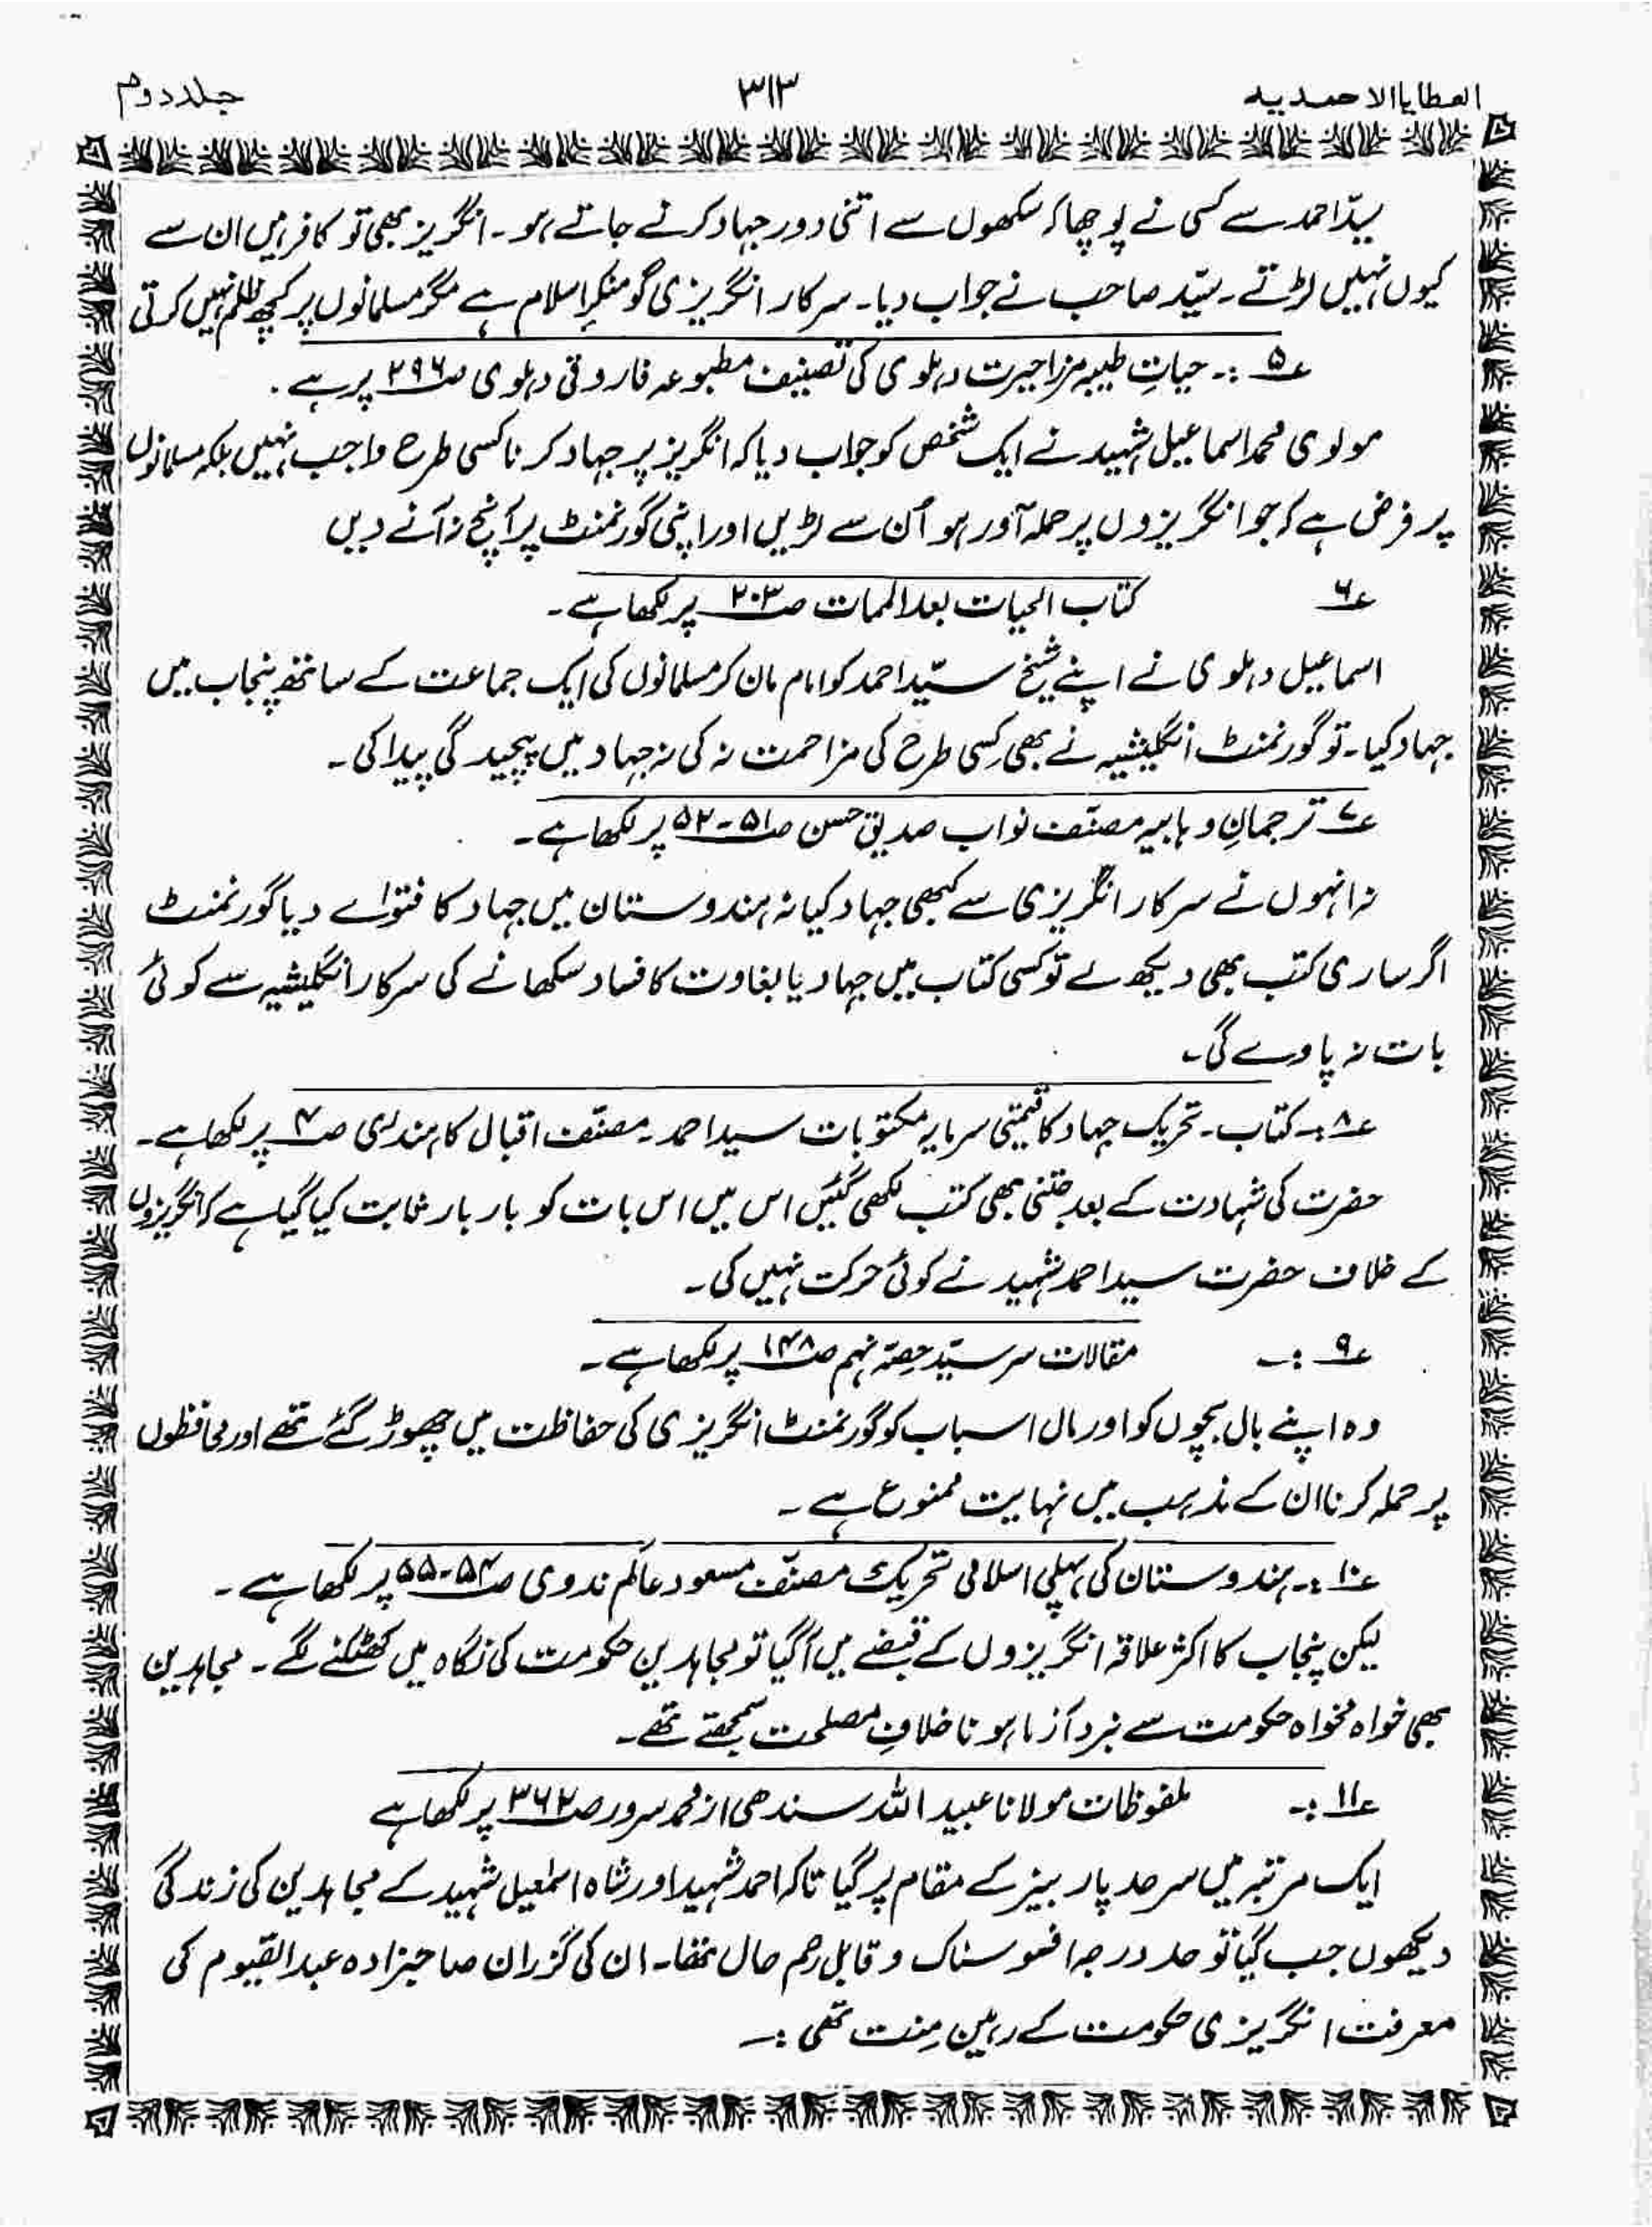 العطایا الاحمدیہ ۳۱۳ جلد دوم
سیّد احمد سے کسی نے پوچھا کہ سکھوں سے اتنی دور جہاد کرنے جاتے ہو۔ انگریز بھی تو کافر ہیں ان سے
کیوں نہیں لڑتے۔ سیّد صاحب نے جواب دیا۔ سرکار انگریزی گو منکرِ اسلام ہے مگر مسلمانوں پر کچھ ظلم نہیں کرتی
ع۵ :۔ حیاتِ طیبہ مرزا حیرت دہلوی کی تصنیف مطبوعہ فاروقی دہلوی ص۲۹۶ پر ہے۔
مولوی محمد اسماعیل شہید نے ایک شخص کو جواب دیا کہ انگریز پر جہاد کرنا کسی طرح واجب نہیں بلکہ مسلمانوں
پر فرض ہے کہ جو انگریزوں پر حملہ آور ہو اُن سے لڑیں اور اپنی گورنمنٹ پر آنچ نہ آنے دیں
ع۶ کتاب الحیات بعد الممات ص۲۰۳ پر لکھا ہے۔
اسماعیل دہلوی نے اپنے شیخ سیّد احمد کو امام مان کر مسلمانوں کی ایک جماعت کے ساتھ پنجاب میں
جہاد کیا۔ تو گورنمنٹ انگلیشیہ نے بھی کِسی طرح کی مزاحمت نہ کی نہ جہاد میں پیچیدگی پیدا کی۔
ع۷ ترجمانِ وہابیہ مصنّف نواب صدیق حسن ص۵۱-۵۲ پر لکھا ہے۔
نہ انہوں نے سرکار انگریزی سے کبھی جہاد کیا نہ ہندوستان میں جہاد کا فتوٰاے دیا گورنمنٹ
اگر ساری کتب بھی دیکھ لے تو کسی کتاب میں جہاد یا بغاوت کا فساد سکھانے کی سرکار انگلیشیہ سے کوئی
بات نہ پاوے گی۔
ع۸ :۔ کتاب۔ تحریک جہاد کا قیمتی سرمایہ مکتوبات سید احمد۔ مصنّف اقبال کامندی ص۴ پر لکھا ہے۔
حضرت کی شہادت کے بعد جتنی بھی کتب لکھی گئیں اس میں اس بات کو بار بار ثابت کیا گیا ہے کہ انگریزوں
کے خلاف حضرت سید احمد شہید نے کوئی حرکت نہیں کی۔
ع۹ :۔ مقالات سر سیّد حصّہ نہم ص۱۴۸ پر لکھا ہے۔
وہ اپنے بال بچوں کو اور مال اسباب کو گورنمنٹ انگریزی کی حفاظت میں چھوڑ گئے تھے اور محافظوں
پر حملہ کرنا ان کے مذہب میں نہایت ممنوع ہے۔
ع۱۰ :۔ ہندوستان کی پہلی اسلامی تحریک مصنّف مسعود عالَم ندوی ص۵۴-۵۵ پر لکھا ہے۔
لیکن پنجاب کا اکثر علاقہ انگریزوں کے قبضے میں آگیا تو مجاہدین حکومت کی نگاہ میں کھٹکنے لگے۔ مجاہدین
بھی خواہ مخواہ حکومت سے نبرد آزما ہونا خلافِ مصلحت سمجھتے تھے۔
ع۱۱ :۔ ملفوظات مولانا عبید اللہ سندھی از محمد سرور ص۳۶۲ پر لکھا ہے
ایک مرتبہ میں سرحد پار بنیر کے مقام پر گیا تاکہ احمد شہید اور شاہ اسمٰعیل شہید کے مجاہدین کی زندگی
دیکھوں جب گیا تو حد درجہ افسوسناک و قابلِ رحم حال تھا۔ ان کی گزران صاحبزادہ عبد القیوم کی
معرفت انگریزی حکومت کے رہین مِنت تھی :۔